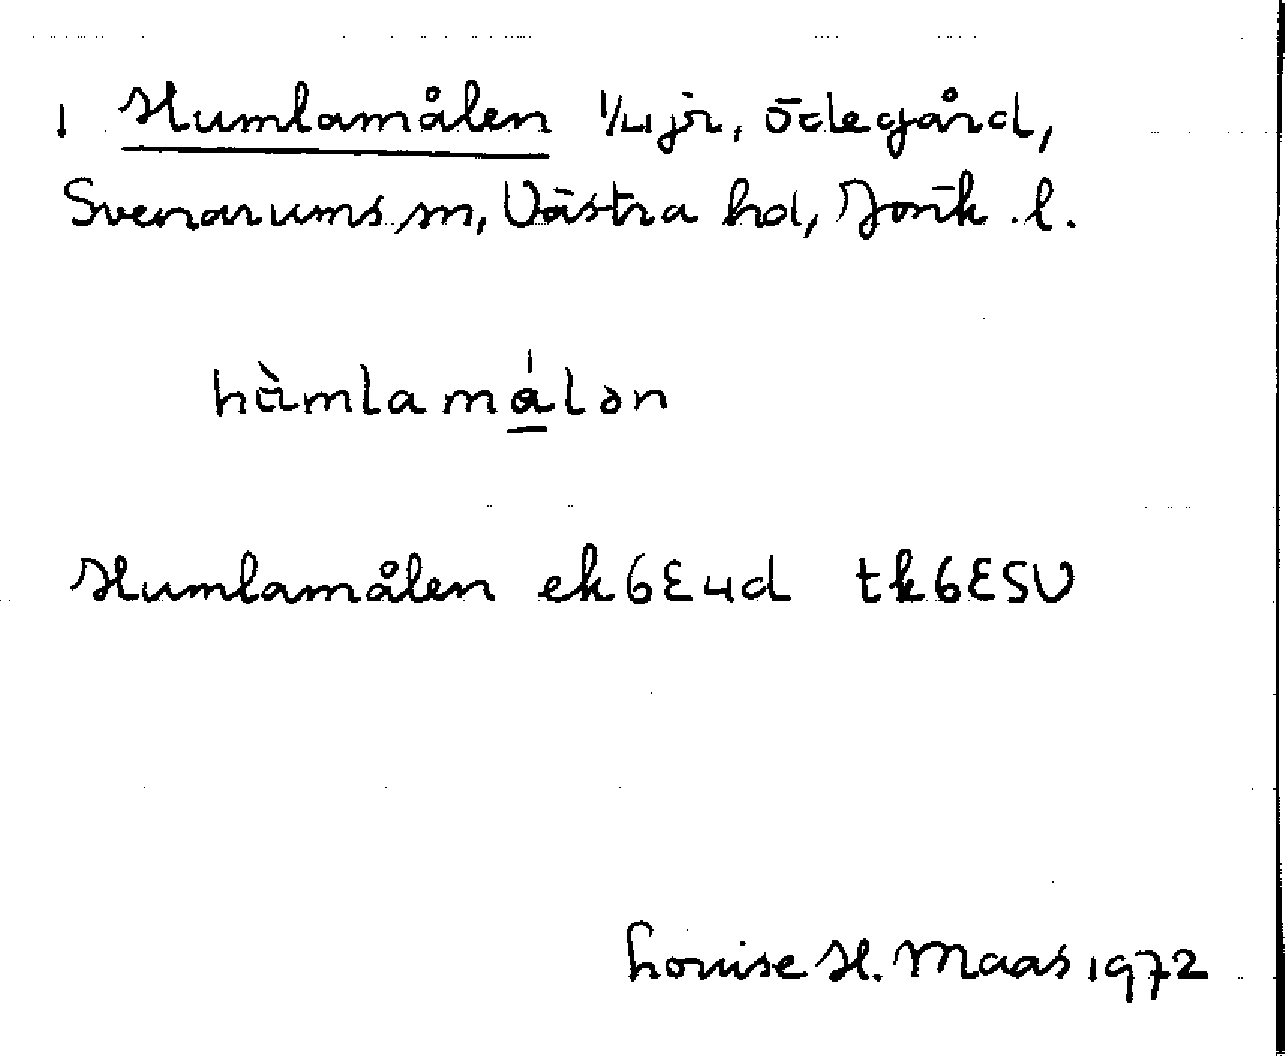 1 Humlamålen 1/4 jr, ödegård,
Svenarums sn, Västra hd, Jönk. l.
hàmlamálən
Humlamålen ek6E4d tk6ESV
Louise H. Maas 1972